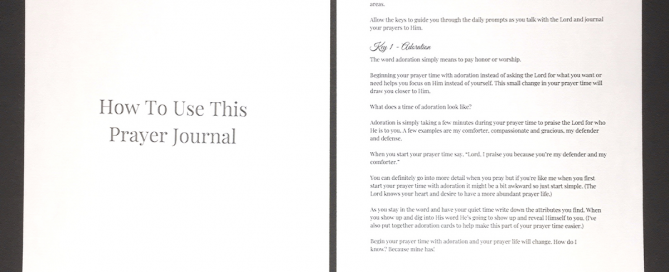 How To Use This
Prayer Journal
areas.
Allow the keys to guide you through the daily prompts as you talk with the Lord and journal
your prayers to Him.
Key 1 - Adoration
The word adoration simply means to pay honor or worship.
Beginning your prayer time with adoration instead of asking the Lord for what you want or
need helps you focus on Him instead of yourself. This small change in your prayer time will
draw you closer to Him.
What does a time of adoration look like?
Adoration is simply taking a few minutes during your prayer time to praise the Lord for who
He is to you. A few examples are my comforter, compassionate and gracious, my defender
and defense.
When you start your prayer time say, "Lord, I praise you because you're my defender and my
comforter."
You can definitely go into more detail when you pray but if you're like me when you first
start your prayer time with adoration it might be a bit awkward so just start simple. (The
Lord knows your heart and desire to have a more abundant prayer life.)
As you stay in the word and have your quiet time write down the attributes you find. When
you show up and dig into His word He's going to show up and reveal Himself to you. (I've
also put together adoration cards to help make this part of your prayer time easier.)
Begin your prayer time with adoration and your prayer life will change. How do I
know? Because mine has!